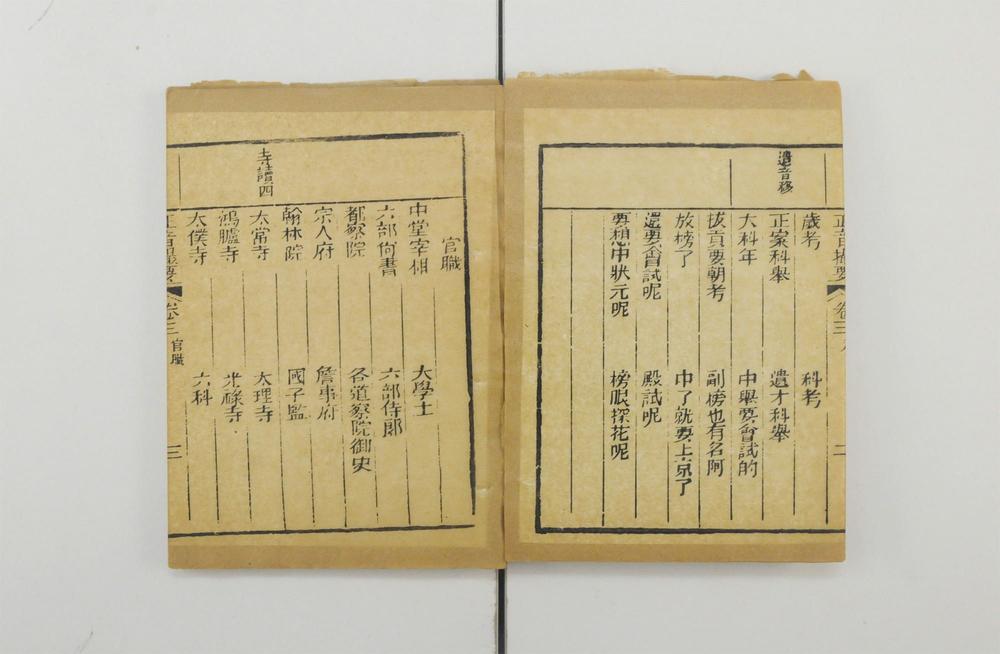 正音撮要 卷三 二
遺音移
歲考 科考
正案科舉 遺才科舉
大科年 中舉要會試的
拔貢要朝考 副榜也有名阿
放榜了 中了就要上京了
還要會試呢 殿試呢
要想中狀元呢 榜眼探花呢
官職
中堂宰相 大學士
六部尚書 六部侍郎
都察院 各道察院御史
宗人府 詹事府
翰林院 國子監
寺讀四
太常寺 太理寺
鴻臚寺 光祿寺
太僕寺 六科
正音撮要 卷三 官職 三